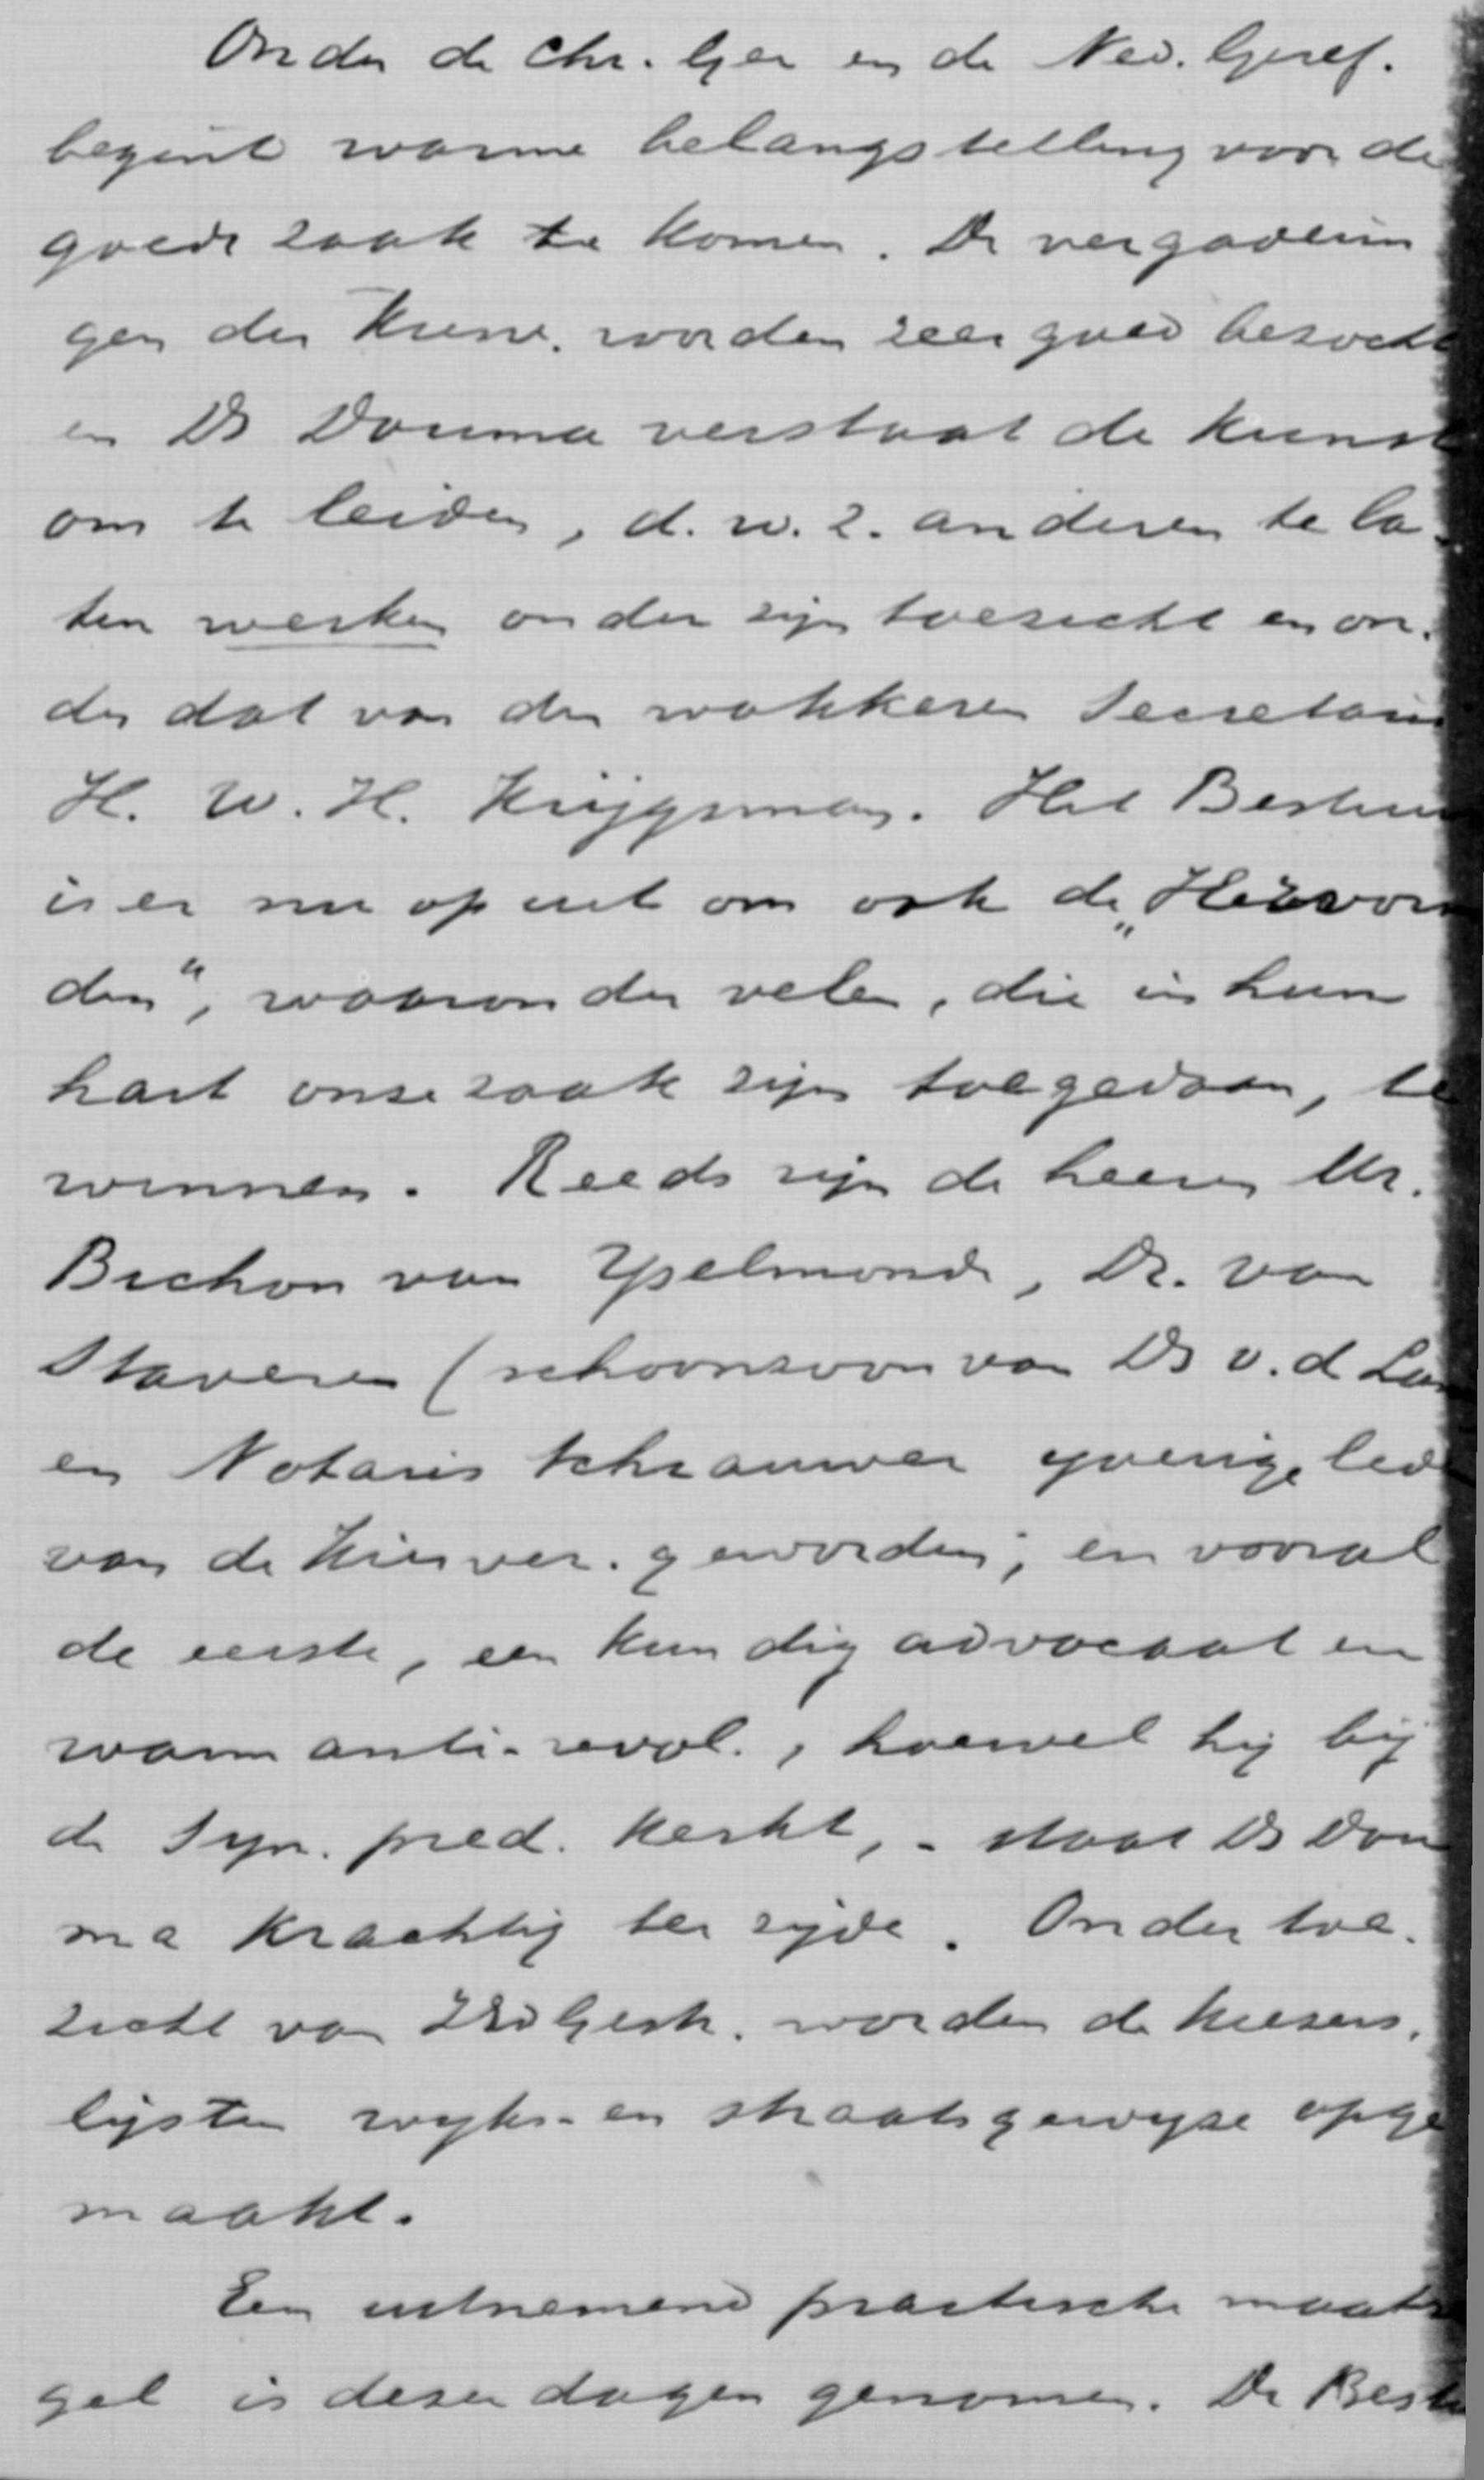 Onder de Chr. Ger en de Ned. Geref.
begint warme belangstelling voor de
goede zaak te komen. De vergaderin
gen der Kiesv. worden zeer goed bezocht
en Ds Douma verstaat de kunst
om te leiden, d. w. z. anderen te la-
ten werken onder zijn toezicht en on-
der dat van den wakkeren Secretaris
H. W. H. Krijgsman. Het Bestuur
is er nu op uit om ook de „Hervorm
den", waaronder velen, die in hun
hart onze zaak zijn toegedaan, te
winnen. Reeds zijn de heeren Mr.
Bichon van Yselmonde, Dr. van
Staveren (schoonzoon van Ds v. d
en Notaris Schrauwer yverige leden
van de Kiesver. geworden; en vooral
de eerste, een kundig advocaat en
warm anti-revol., hoewel hij bij
de Syn. pred. kerkt, - staat Ds Dou
ma krachtig ter zijde. Onder toe-
zicht van worden de kiezers-
lijsten wyks- en straatsgewyze opge
maakt.
Een uitnemend practische maatre
gel is dezer dagen genomen. De Best